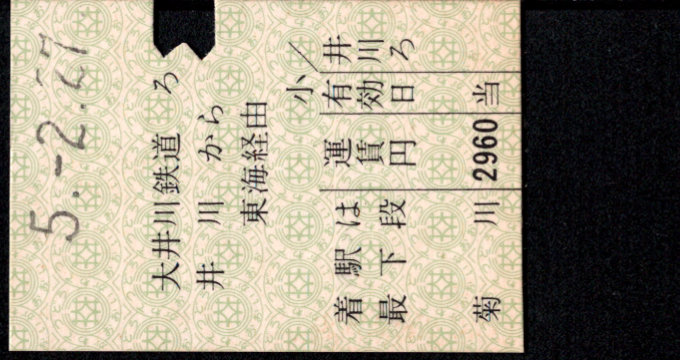 5.-2.27
大井川鉄道 ろ
井川から
東海経由
小
着駅は 運 有 井
賃 効 川
最下段 円 日 ろ
菊川 2960 当